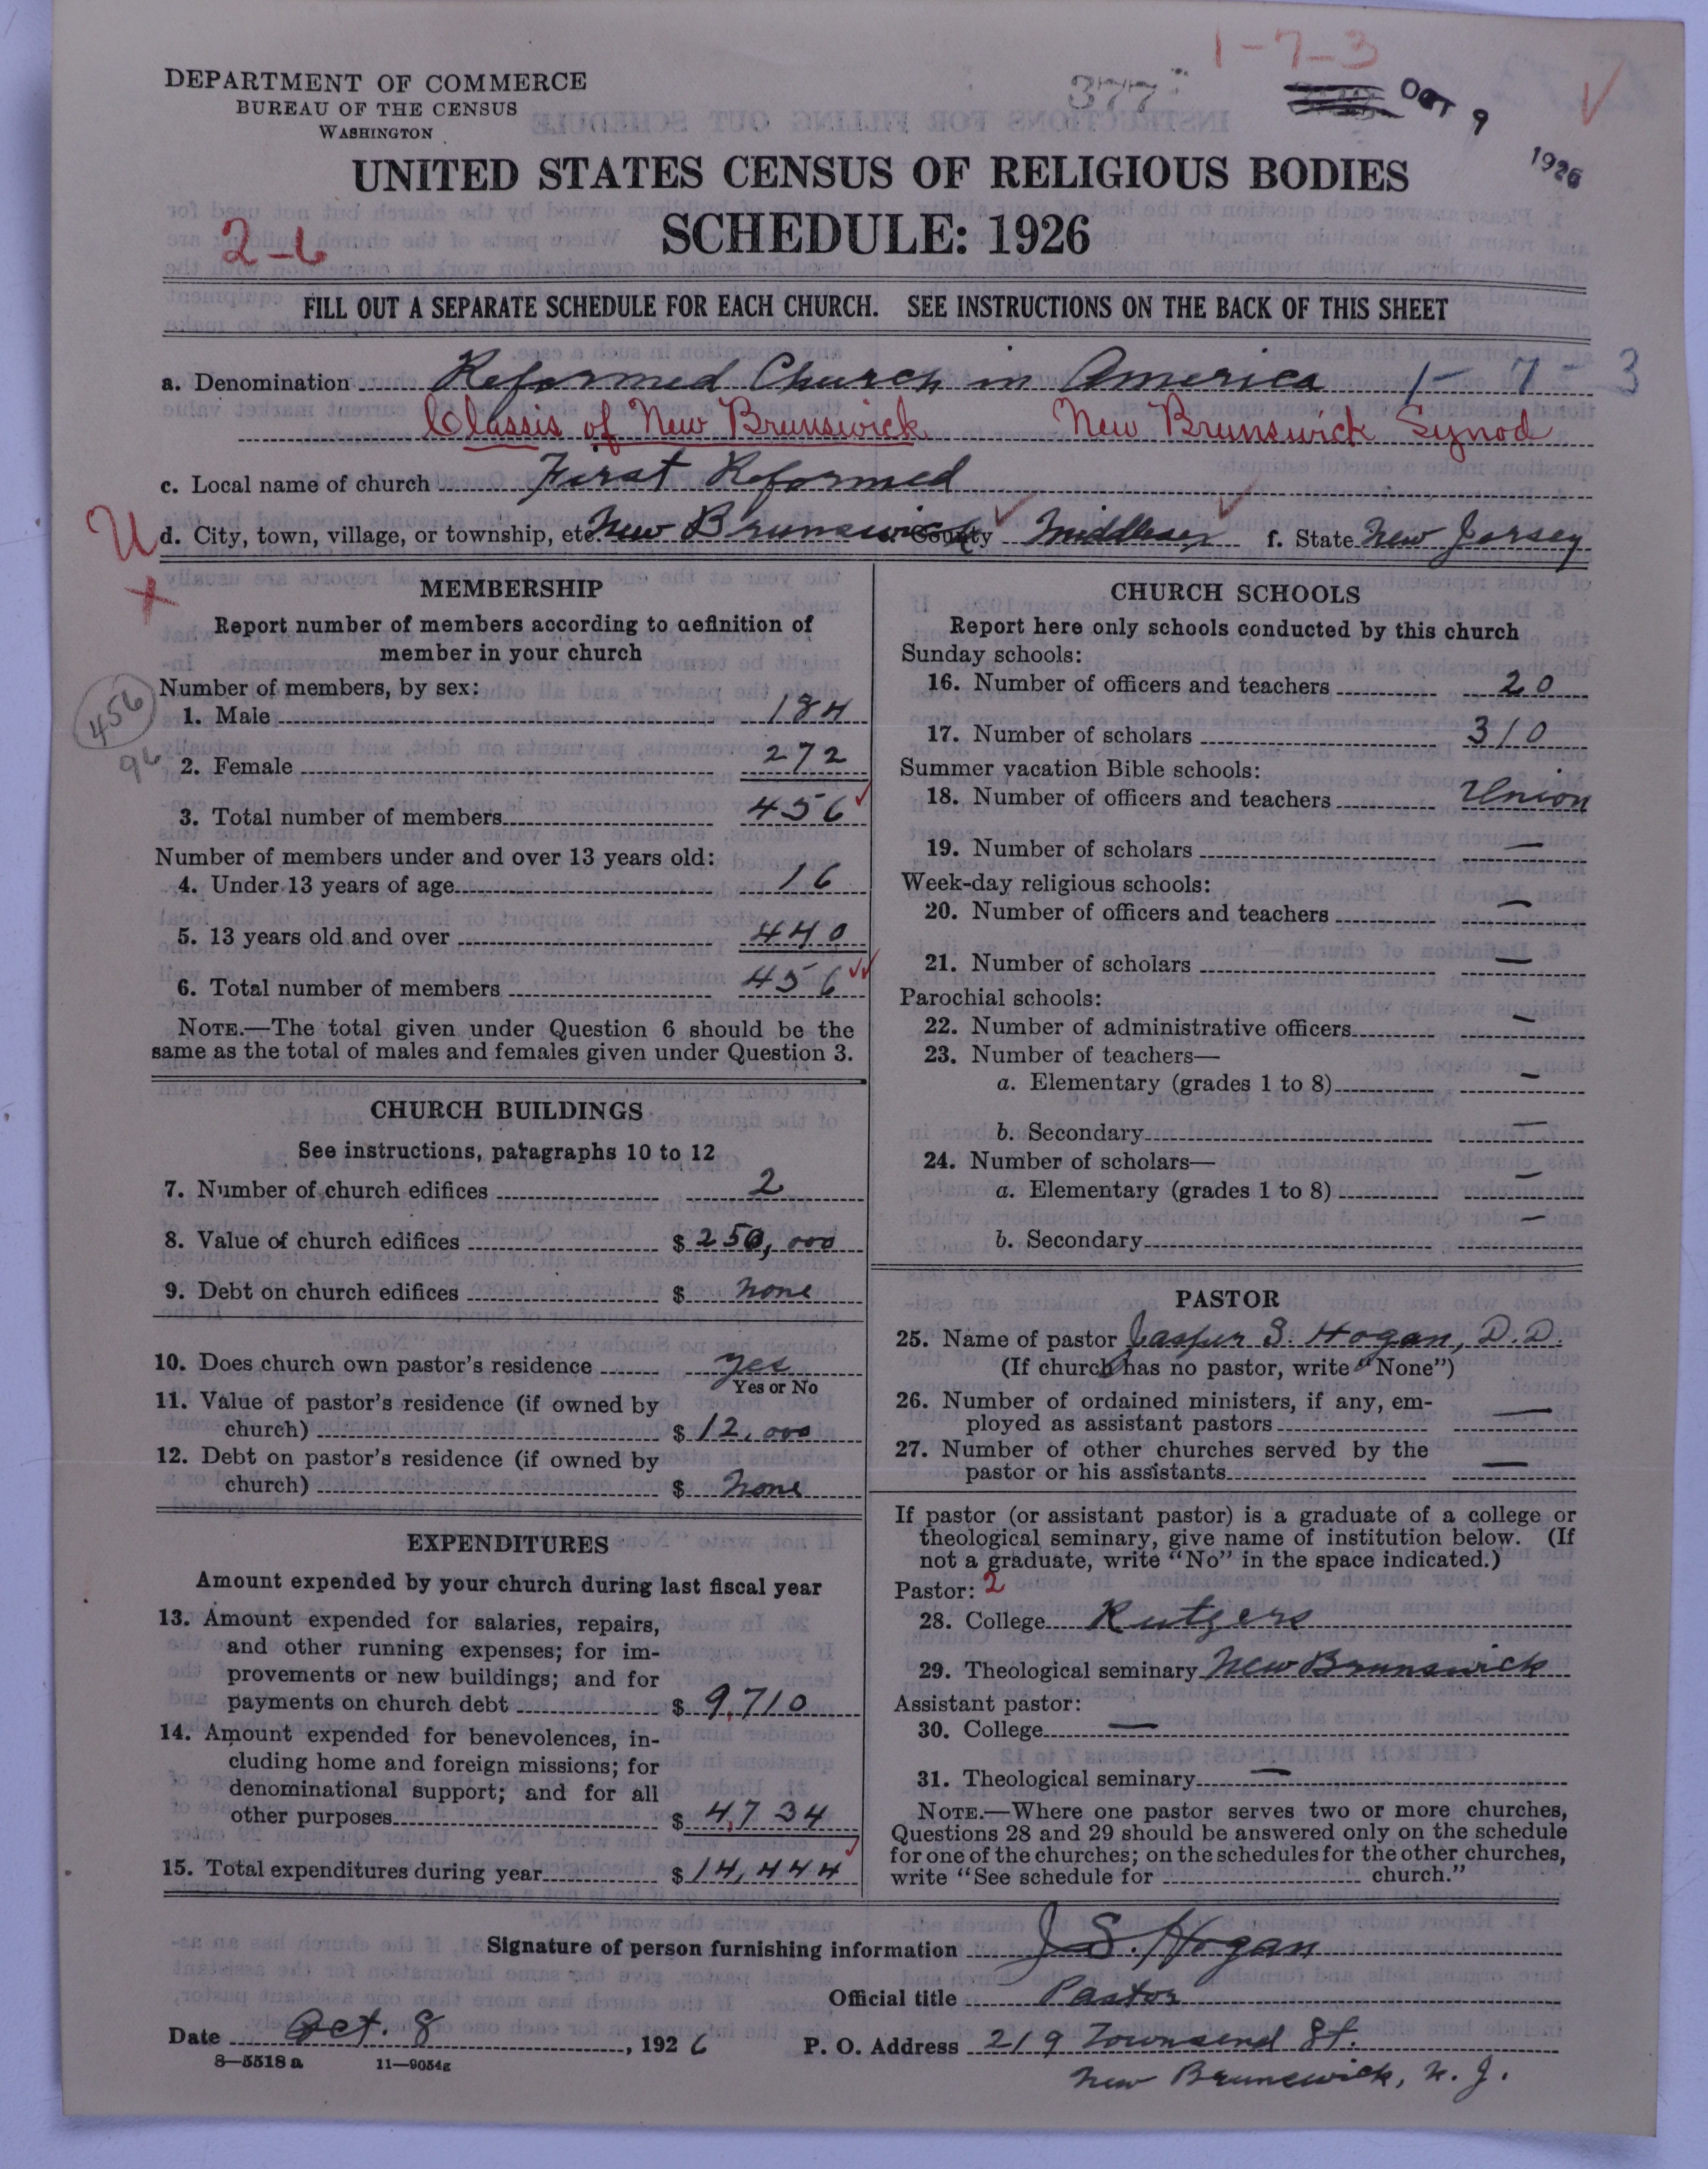 1-7-3
377
OCT 9 1926
DEPARTMENT OF COMMERCE
BUREAU OF THE CENSUS
WASHINGTON
UNITED STATES CENSUS OF RELIGIOUS BODIES
SCHEDULE: 1926
2-6
FILL OUT A SEPARATE SCHEDULE FOR EACH CHURCH. SEE INSTRUCTIONS ON THE BACK OF THIS SHEET
a. Denomination Reformed Church in America 1-7-3
Classis of New Brunswick New Brunswick Synod
c. Local name of church First Reformed
U d. City, town, village, or township, etc New Brunswick County Middlesex f. State New Jersey
MEMBERSHIP
Report number of members according to definition of
member in your church
Number of members, by sex:
456
1. Male 184
2. Female 272
3. Total number of members 456
Number of members under and over 13 years old:
4. Under 13 years of age 16
5. 13 years old and over 440
6. Total number of members 456
NOTE.—The total given under Question 6 should be the
same as the total of males and females given under Question 3.
CHURCH BUILDINGS
See instructions, paragraphs 10 to 12
7. Number of church edifices 2
8. Value of church edifices $ 250,000
9. Debt on church edifices $ none
10. Does church own pastor's residence yes
Yes or No
11. Value of pastor's residence (if owned by
church) $ 12,000
12. Debt on pastor's residence (if owned by
church) $ none
EXPENDITURES
Amount expended by your church during last fiscal year
13. Amount expended for salaries, repairs,
and other running expenses; for im-
provements or new buildings; and for
payments on church debt $ 9,710
14. Amount expended for benevolences, in-
cluding home and foreign missions; for
denominational support; and for all
other purposes $ 4,734
15. Total expenditures during year $ 14,444
CHURCH SCHOOLS
Report here only schools conducted by this church
Sunday schools:
16. Number of officers and teachers 20
17. Number of scholars 310
Summer vacation Bible schools:
18. Number of officers and teachers Union
19. Number of scholars —
Week-day religious schools:
20. Number of officers and teachers —
21. Number of scholars —
Parochial schools:
22. Number of administrative officers —
23. Number of teachers—
a. Elementary (grades 1 to 8) —
b. Secondary —
24. Number of scholars—
a. Elementary (grades 1 to 8) —
b. Secondary —
PASTOR
25. Name of pastor Jasper S. Hogan, D.D.
(If church has no pastor, write "None")
26. Number of ordained ministers, if any, em-
ployed as assistant pastors —
27. Number of other churches served by the
pastor or his assistants —
If pastor (or assistant pastor) is a graduate of a college or
theological seminary, give name of institution below. (If
not a graduate, write "No" in the space indicated.)
Pastor: 2
28. College Rutgers
29. Theological seminary New Brunswick
Assistant pastor:
30. College —
31. Theological seminary —
NOTE.—Where one pastor serves two or more churches,
Questions 28 and 29 should be answered only on the schedule
for one of the churches; on the schedules for the other churches,
write "See schedule for church."
Signature of person furnishing information J. S. Hogan
Official title Pastor
Date Oct. 8, 1926 P. O. Address 219 Townsend St.
New Brunswick, N. J.
8—5518 a 11—9054g